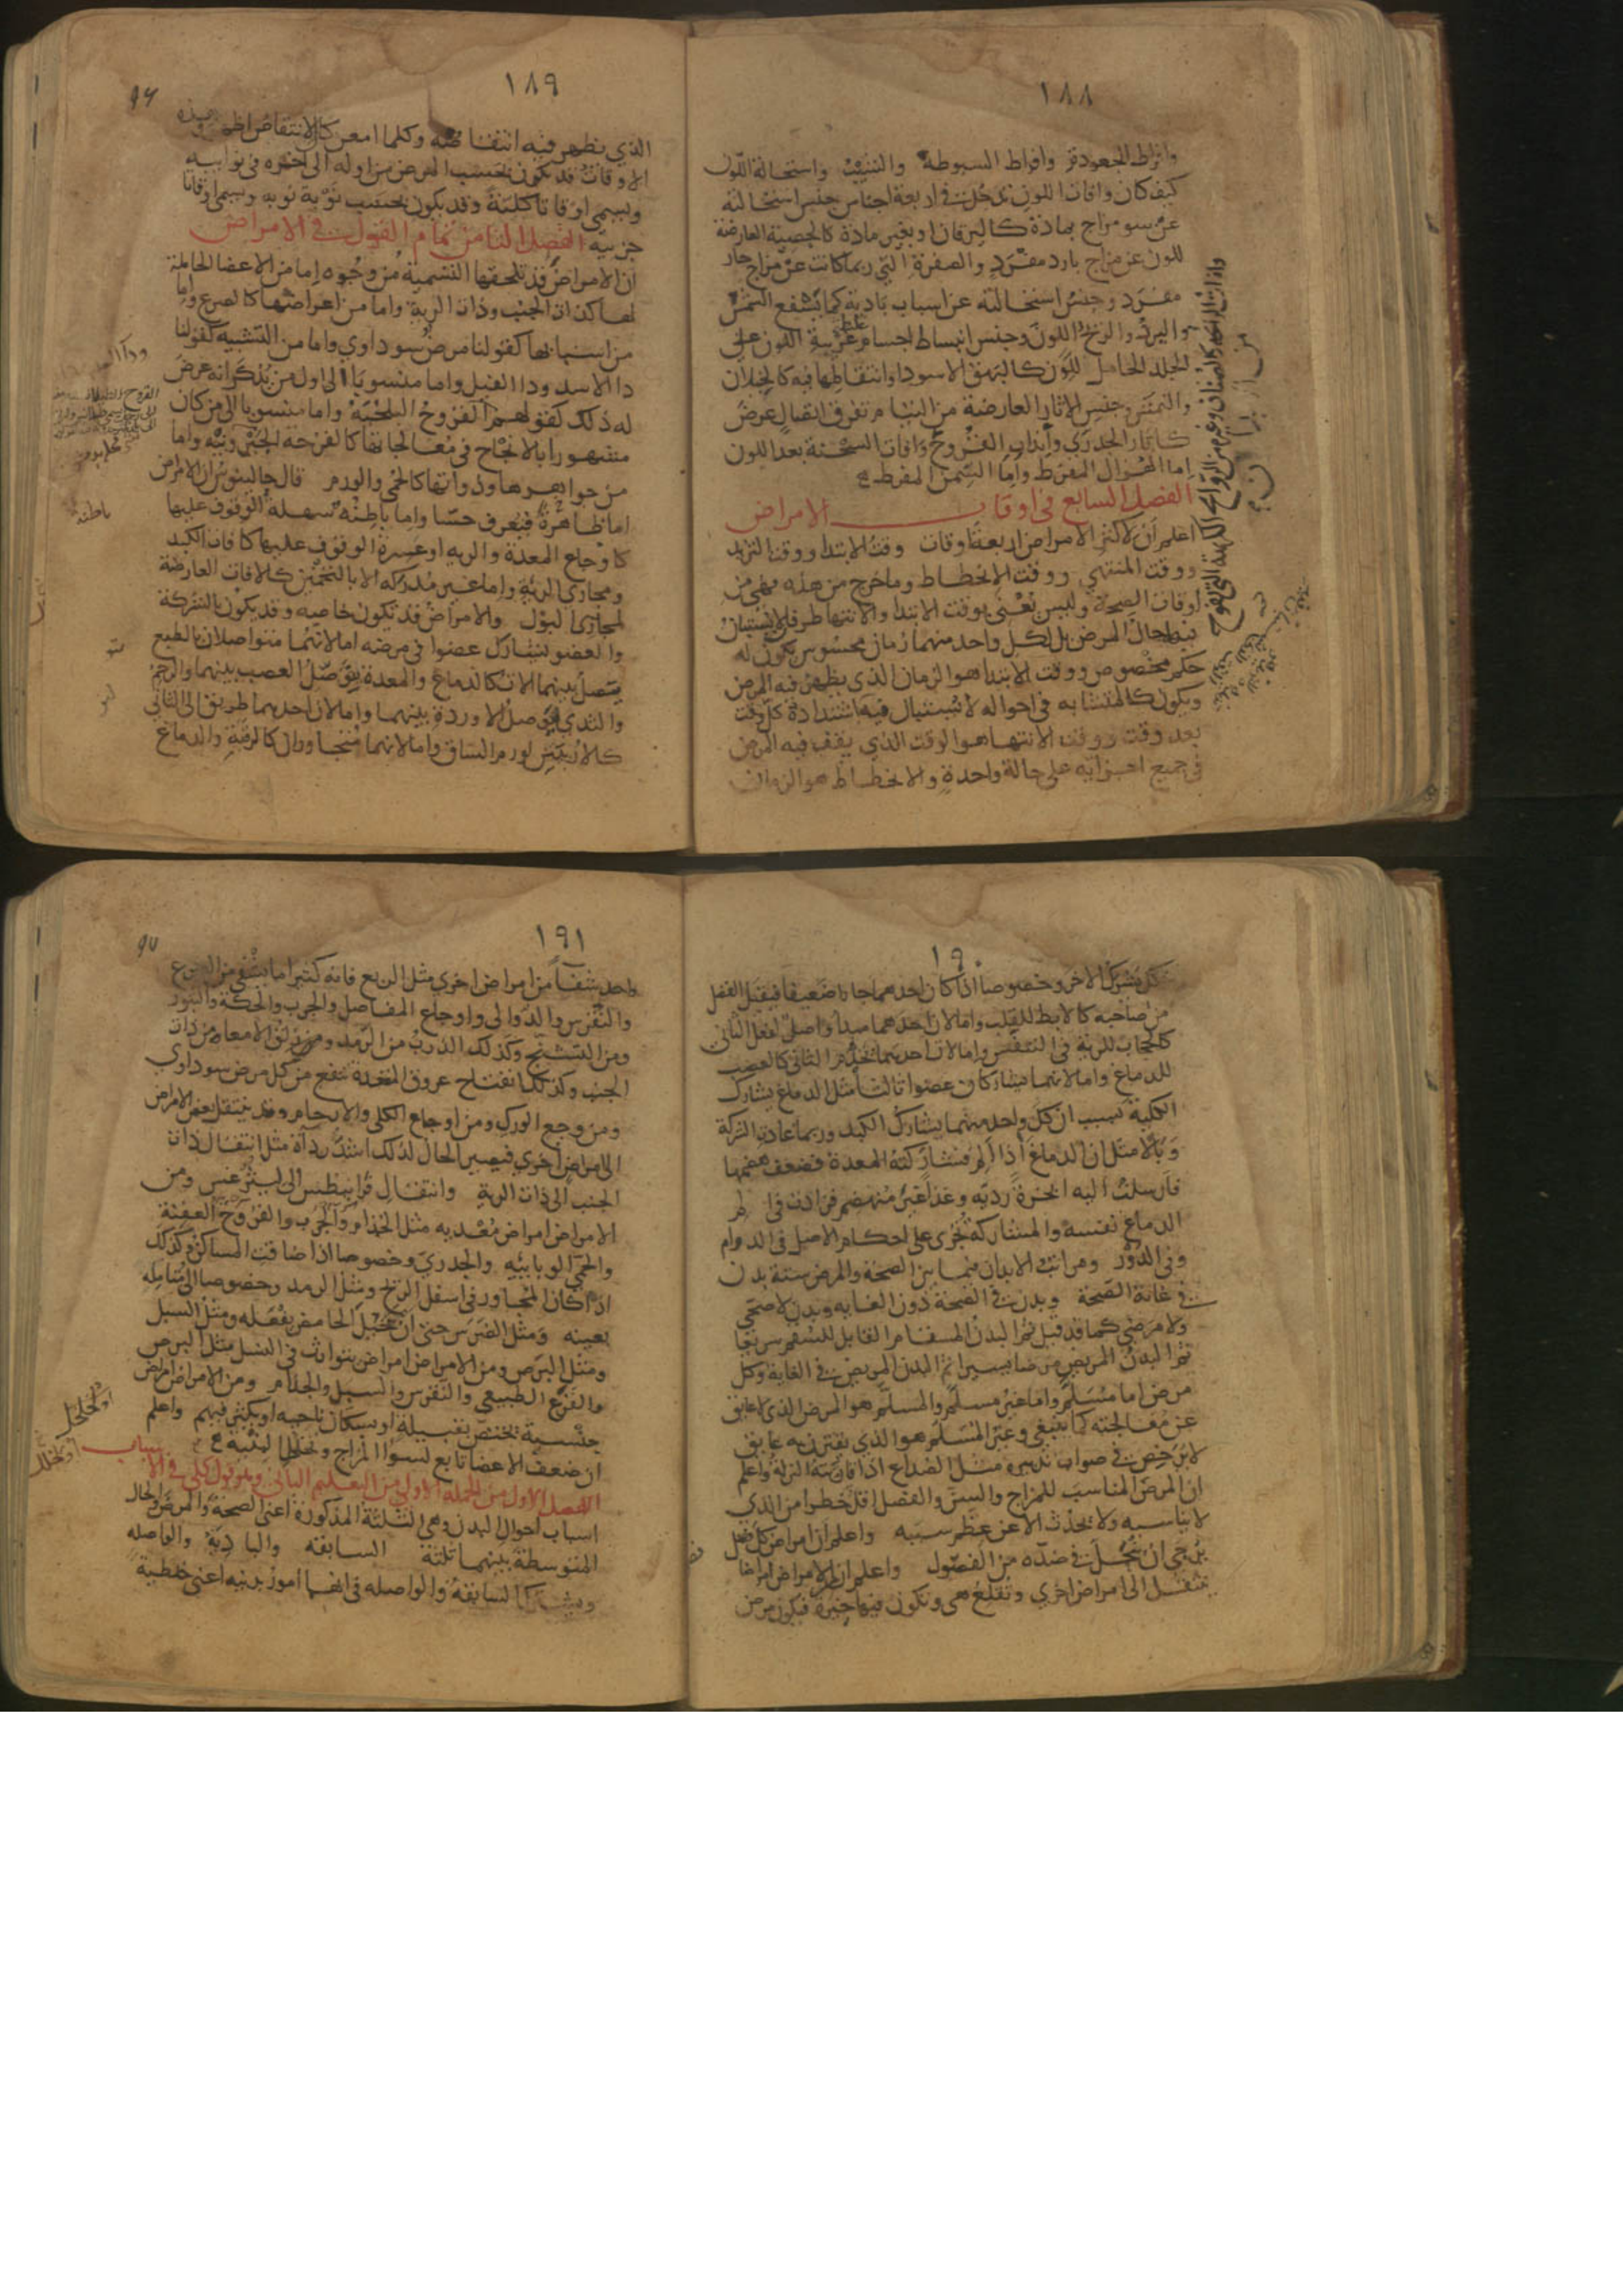 ١٨٨
وافراط الجعودة وافراط السبوطة والشيب واستحالة اللون
كيف كان وافات اللون تدخل في اربعة اجناس جنس استحالته
عن سو مزاج بمادة كاليرقان او بغير مادة كالجصية العارضة
للون عن مزاج بارد مفرد والصفرة التي ربما كانت عن مزاج حار
مفرد وجنس استحالته عن اسباب بادية كما يسفع الشمس
والبرد والريح اللون وجنس انبساط اجسام غريبة اللون على
الجلد الحامل للون كالبهق الاسود او انتقاطها فيه كالخيلان
والنمش وجنس الاثار العارضة من التيام تفرق اتصال عرض
كاثار الجدري وانداب القروح وافات السحنة بعد اللون
اما الهزال المفرط واما السمن المفرط
الفصل السابع في اوقات الامراض
اعلم ان لاكثر الامراض اربعة اوقات وقت الابتدا ووقت التزيد
ووقت المنتهي ووقت الانحطاط وما خرج من هذه فهي من
اوقات الصحة وليس نعني بوقت الابتدا والانتها طرفان لا يستبان
فيه احوال المرض بل لكل واحد منهما زمان محسوس يكون له
حكم مخصوص ووقت الابتدا هو الزمان الذي يظهر فيه المرض
ويكون كالمتشابه في احواله لا يستبان فيه اشتداده كل وقت
بعد وقت ووقت الانتها هو الوقت الذي يقف فيه المرض
في جميع اجزايه على حالة واحدة والانحطاط هو الزمان
١٨٩
الذي يظهر فيه انتقاصه وكلما امعن كان الانتقاص اظهر وهذه
الاوقات قد تكون بحسب المرض من اوله الى اخره في نوايبه
ويسمى اوقاتا كلية وقد يكون بحسب نوبة نوبة ويسمى اوقاتا
جزيية الفصل الثامن تمام القول في الامراض
ان الامراض قد تلحقها التسمية من وجوه اما من الاعضا الحاملة
لها كذات الجنب وذات الرية واما من اعراضها كالصرع واما
من اسبابها كقولنا مرض سوداوي واما من التشبيه كقولنا
دا الاسد ودا الفيل واما منسوبا الى اول من يذكر انه عرض
له ذلك كقولهم القروح البلخية واما منسوبا الى من كان
مشهورا بالانجاح في معالجاتها كالقرحة الجيرونية واما
من جواهرها وذواتها كالحمى والورم قال جالينوس ان الامراض
اما ظاهرة فيعرف حسا واما باطنة سهلة الوقوف عليها
كاوجاع المعدة والرية او عسرة الوقوف عليها كافات الكبد
ومجاري الرية واما غير مدركه الا بالتخمين كالافات العارضة
لمجاري البول والامراض قد تكون خاصيه وقد يكون بالشركة
والعضو يشارك عضوا في مرضه اما لانهما متواصلان بالطبع
يتصل بينهما الات كالدماغ والمعدة يوصل العصب بينهما والرحم
والثدي يوصل الاوردة بينهما واما لان احدهما طريق الى الثاني
كالاربيتين لورم الساق واما لانهما متجاوران كالرقبة والدماغ
باطنه
١٩٠
كل يشرك الاخر وخصوصا اذا كان احدهما جارا ضعيفا فيقبل الفضل
من صاحبه كالابط للقلب واما لان احدهما مبدأ واصل لفعل الثاني
كالحجاب للرية في التنفس واما لان احدهما يخدم الثاني كالعصب
للدماغ واما لانهما يشاركان عضوا ثالثا مثل الدماغ يشارك
الكلية بسبب ان كل واحد منهما يشارك الكبد وربما عادت الشركة
وبالا مثل ان الدماغ اذا الم فشاركته المعدة فضعف هضمها
فارسلت اليه ابخرة رديه وغذا غير منهضم فزادت في الم
الدماغ نفسه والمشاركة تجري على احكام الاصل في الدوام
وفي الدور ومراتب الابدان فيما بين الصحة والمرض ستة بدن
في غاية الصحة وبدن في الصحة دون الغايه وبدن لا صحي
ولا مرضي كما قد قيل ثم البدن المسقام القابل للسقم سريعا
ثم البدن المريض مرضا يسيرا ثم البدن المريض في الغاية وكل
مرض اما مسلم واما غير مسلم والمسلم هو المرض الذي لا عايق
عن معالجته كما ينبغي وغير المسلم هو الذي يقترن به عايق
لا يرخص في صواب تدبيره مثل الصداع اذا قارنته النزلة واعلم
ان المرض المناسب للمزاج والسن والفصل اقل خطرا من الذي
لا يناسبه ولا يحدث الا عن عظم سببه واعلم ان امراض كل فصل
يرجى ان ينحل في ضده من الفصول واعلم ان من الامراض امراضا
تنتقل الى امراض اخرى وتقلع هي وتكون فيها خيرة فيكون مرض
١٩١
واحد شفا من امراض اخرى مثل الربع فانه كثيرا ما يشفي من الصرع
والنقرس والدوالي واوجاع المفاصل والجرب والحكة والبثور
ومن التشنج وكذلك الذرب من الرمد ومن زلق الامعا ومن ذات
الجنب وكذلك انفتاح عروق المقعدة تنفع من كل مرض سوداوي
ومن وجع الورك ومن اوجاع الكلى والارحام وقد ينتقل بعض الامراض
الى امراض اخرى فيصير الحال لذلك اشد رداة مثل انتقال ذات
الجنب الى ذات الرية وانتقال قرانيطس الى ليثرغس ومن
الامراض امراض معديه مثل الجذام والجرب والقروح العفنة
والحمى الوبائيه والجدري وخصوصا اذا ضاقت المساكن وكذلك
اذا كان المجاور في اسفل الريح ومثل الرمد وخصوصا الى متامله
بعينه ومثل الضرس حتى ان تخيل الحامض يفعله ومثل السل
ومثل البرص ومن الامراض امراض يتوارث في النسل مثل البرص
والقرع الطبيعي والنقرس والسل والجذام ومن الامراض امراض
جنسية تختص بقبيلة او سكان ناحيه او يكثر فيهم واعلم
ان ضعف الاعضا تابع لسوء المزاج وتخلخل البنيه
الفصل الاول من الجملة الاولى من التعليم الثاني وهو قول كلي في الاسباب
اسباب احوال البدن وهي الثلثة المذكورة اعني الصحة والمرض والحال
المتوسطة بينهما ثلثة السابقه والبادية والواصله
ويشترك السابقة والواصله في انهما امور بدنيه اعني خلطية